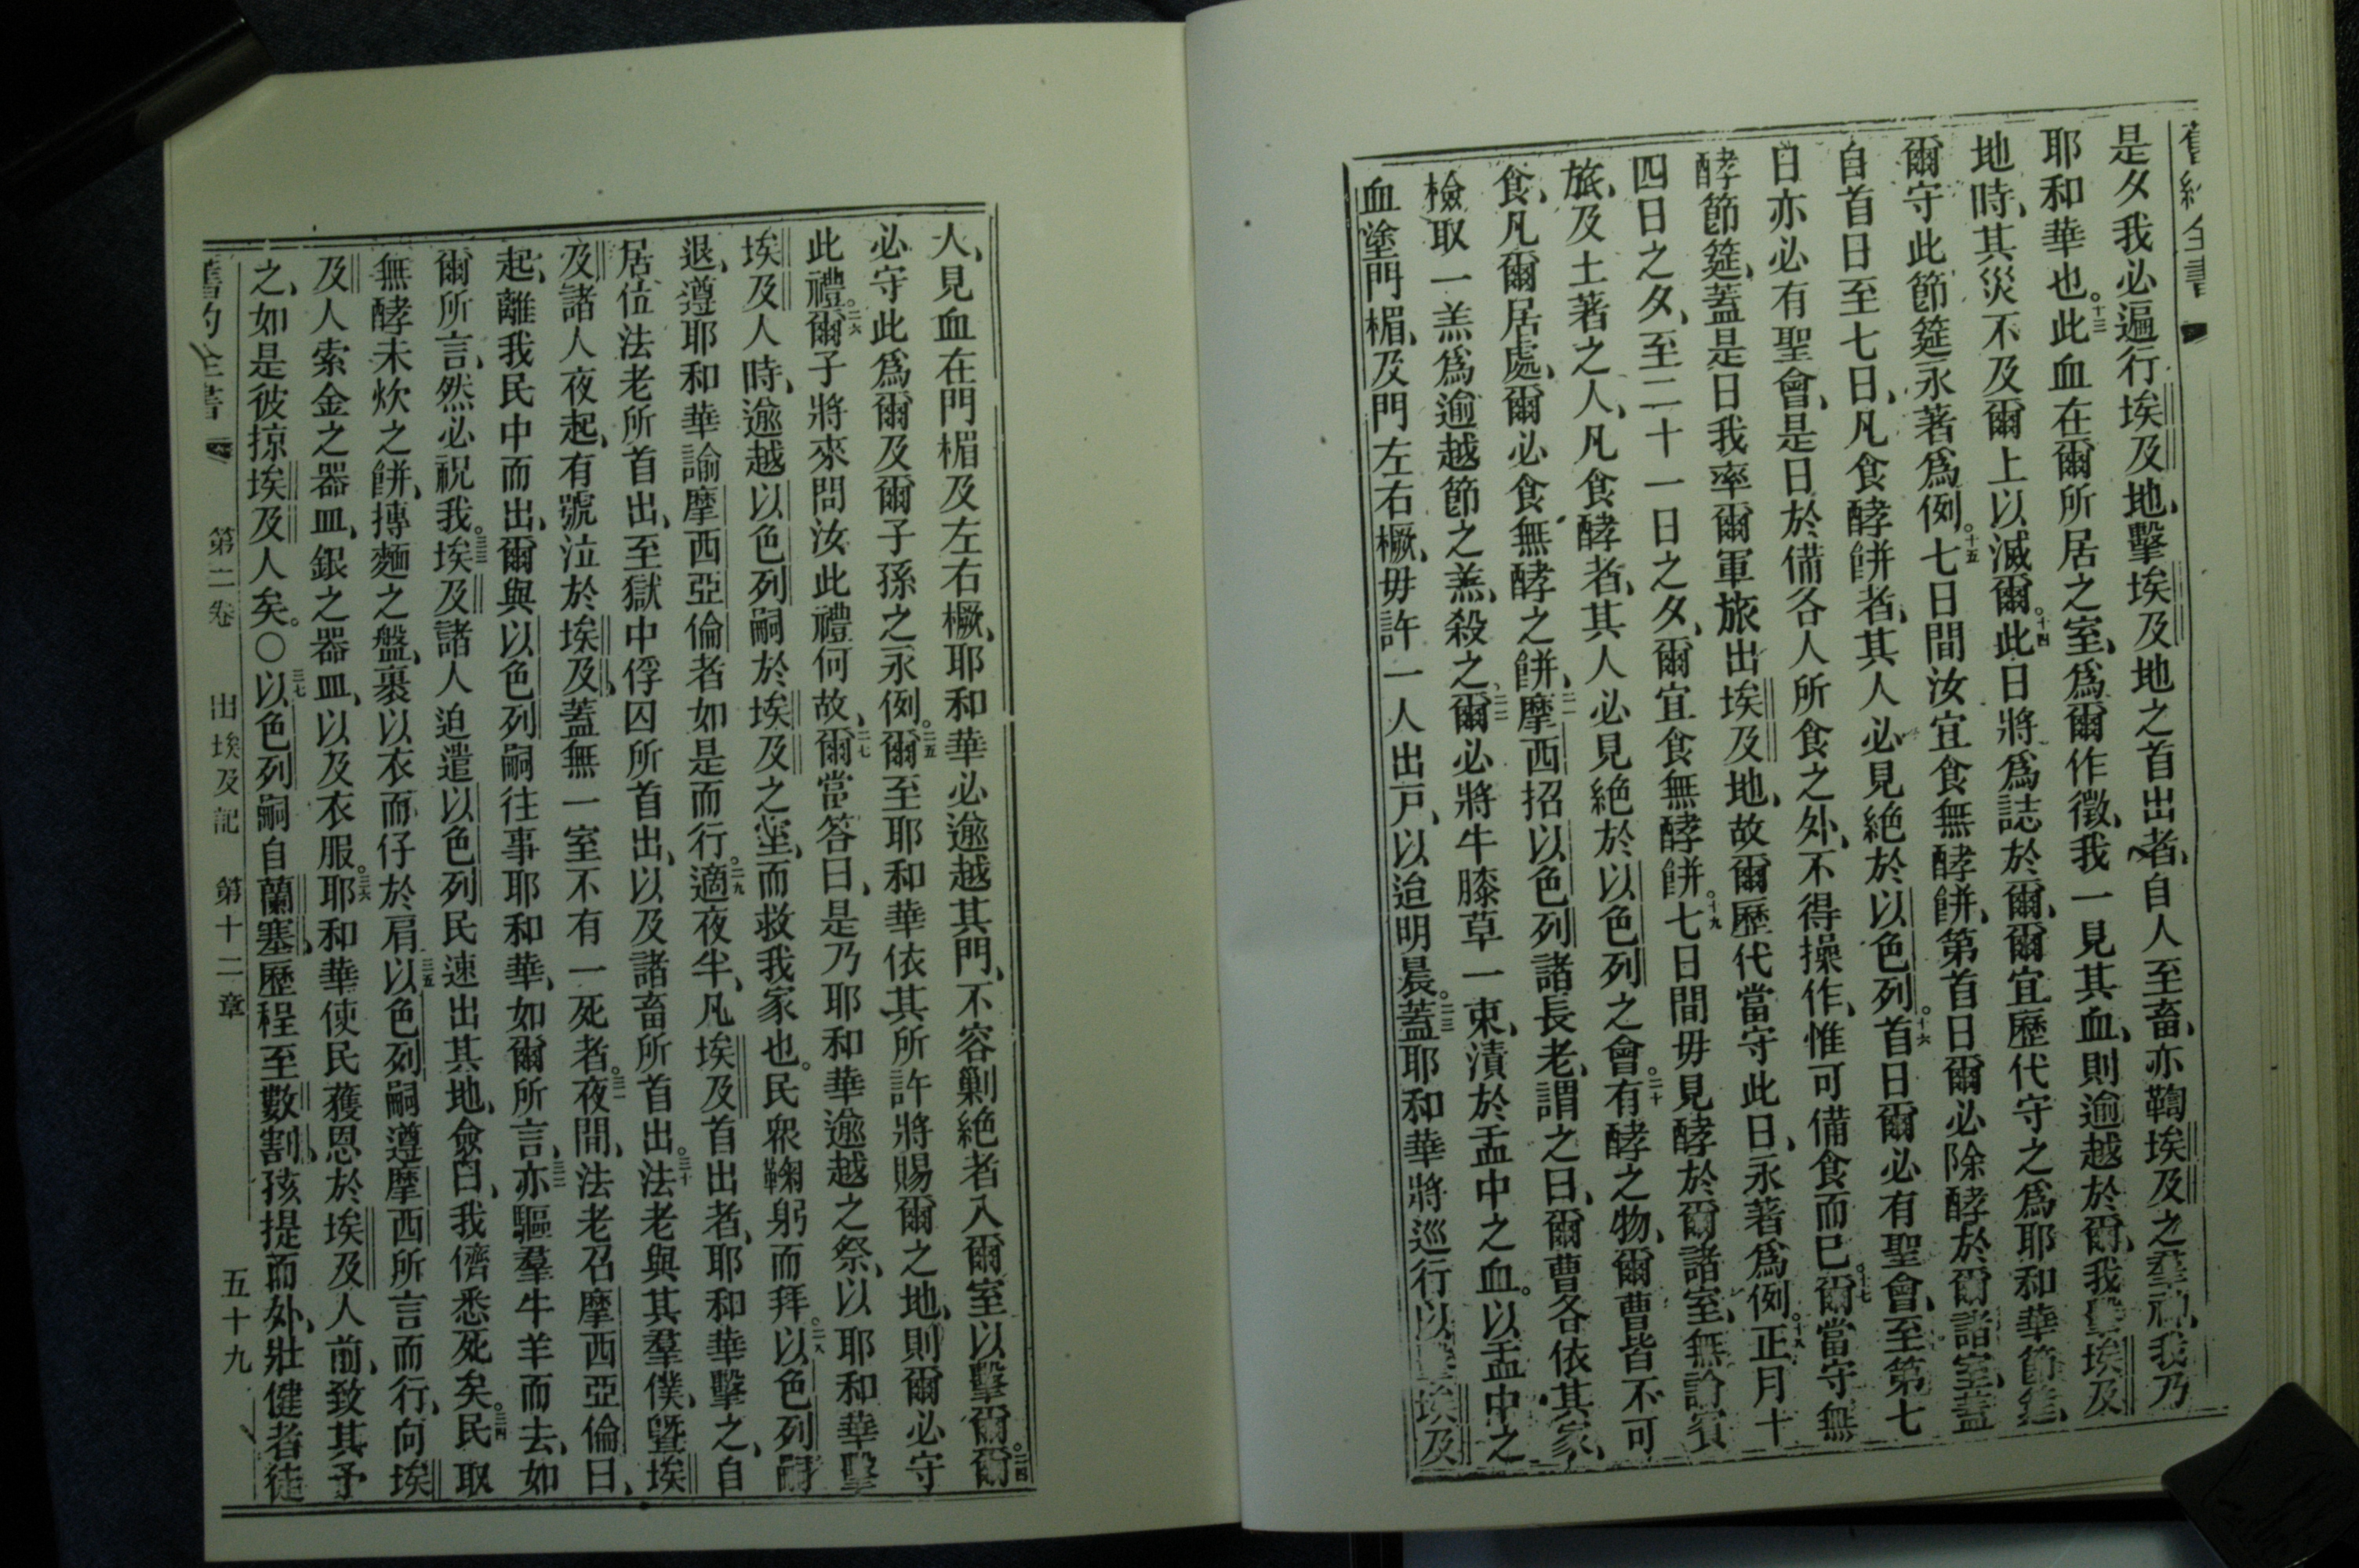 舊約全書
是夕我必遍行埃及地、擊埃及地之首出者、自人至畜、亦鞫埃及之羣神、我乃
耶和華也。十三此血在爾所居之室、爲爾作徵、我一見其血、則逾越於爾、我擊埃及
地時、其災不及爾上以滅爾。十四此日將爲誌於爾、爾宜歷代守之爲耶和華節筵、
爾守此節筵永著爲例。十五七日間汝宜食無酵餅、第首日爾必除酵於爾諸室、蓋
自首日至七日、凡食酵餅者、其人必見絕於以色列。十六首日爾必有聖會、至第七
日亦必有聖會、是日於備各人所食之外、不得操作、惟可備食而已。十七爾當守無
酵節筵、蓋是日我率爾軍旅出埃及地、故爾歷代當守此日、永著爲例。十八正月十
四日之夕、至二十一日之夕、爾宜食無酵餅。十九七日間毋見酵於爾諸室、無論賓
旅、及土著之人、凡食酵者、其人必見絕於以色列之會。二十有酵之物、爾曹皆不可
食、凡爾居處、爾必食無酵之餅、二一摩西招以色列諸長老、謂之曰、爾曹各依其家、
檢取一羔爲逾越節之羔、殺之、二二爾必將牛膝草一束、漬於盂中之血。以盂中之
血塗門楣、及門左右橛、毋許一人出戸、以迨明晨。二三蓋耶和華將巡行以擊埃及
人、見血在門楣及左右橛、耶和華必逾越其門、不容剿絕者入爾室以擊爾。二四爾
必守此爲爾及爾子孫之永例。二五爾至耶和華依其所許將賜爾之地、則爾必守
此禮。二六爾子將來問汝此禮何故、二七爾當答曰、是乃耶和華逾越之祭、以耶和華擊
埃及人時、逾越以色列嗣於埃及之室、而救我家也。民衆鞠躬而拜。二八以色列嗣
退、遵耶和華諭摩西亞倫者如是而行。二九適夜半、凡埃及首出者、耶和華擊之、自
居位法老所首出、至獄中俘囚所首出、以及諸畜所首出。三十法老與其羣僕、曁埃
及諸人夜起、有號泣於埃及、蓋無一室不有一死者。三一夜間、法老召摩西亞倫曰、
起、離我民中而出、爾與以色列嗣往事耶和華、如爾所言、三二亦驅羣牛羊而去、如
爾所言、然必祝我。三三埃及諸人迫遣以色列民速出其地、僉曰、我儕悉死矣。三四民取
無酵未炊之餅、摶麵之盤、裹以衣而仔於肩、三五以色列嗣遵摩西所言而行、向埃
及人索金之器皿、銀之器皿、以及衣服。三六耶和華使民獲恩於埃及人前、致其予
之、如是彼掠埃及人矣。〇三七以色列嗣自蘭塞、歷程至數割、孩提而外、壯健者徒
舊約全書　第二卷　出埃及記　第十二章　五十九